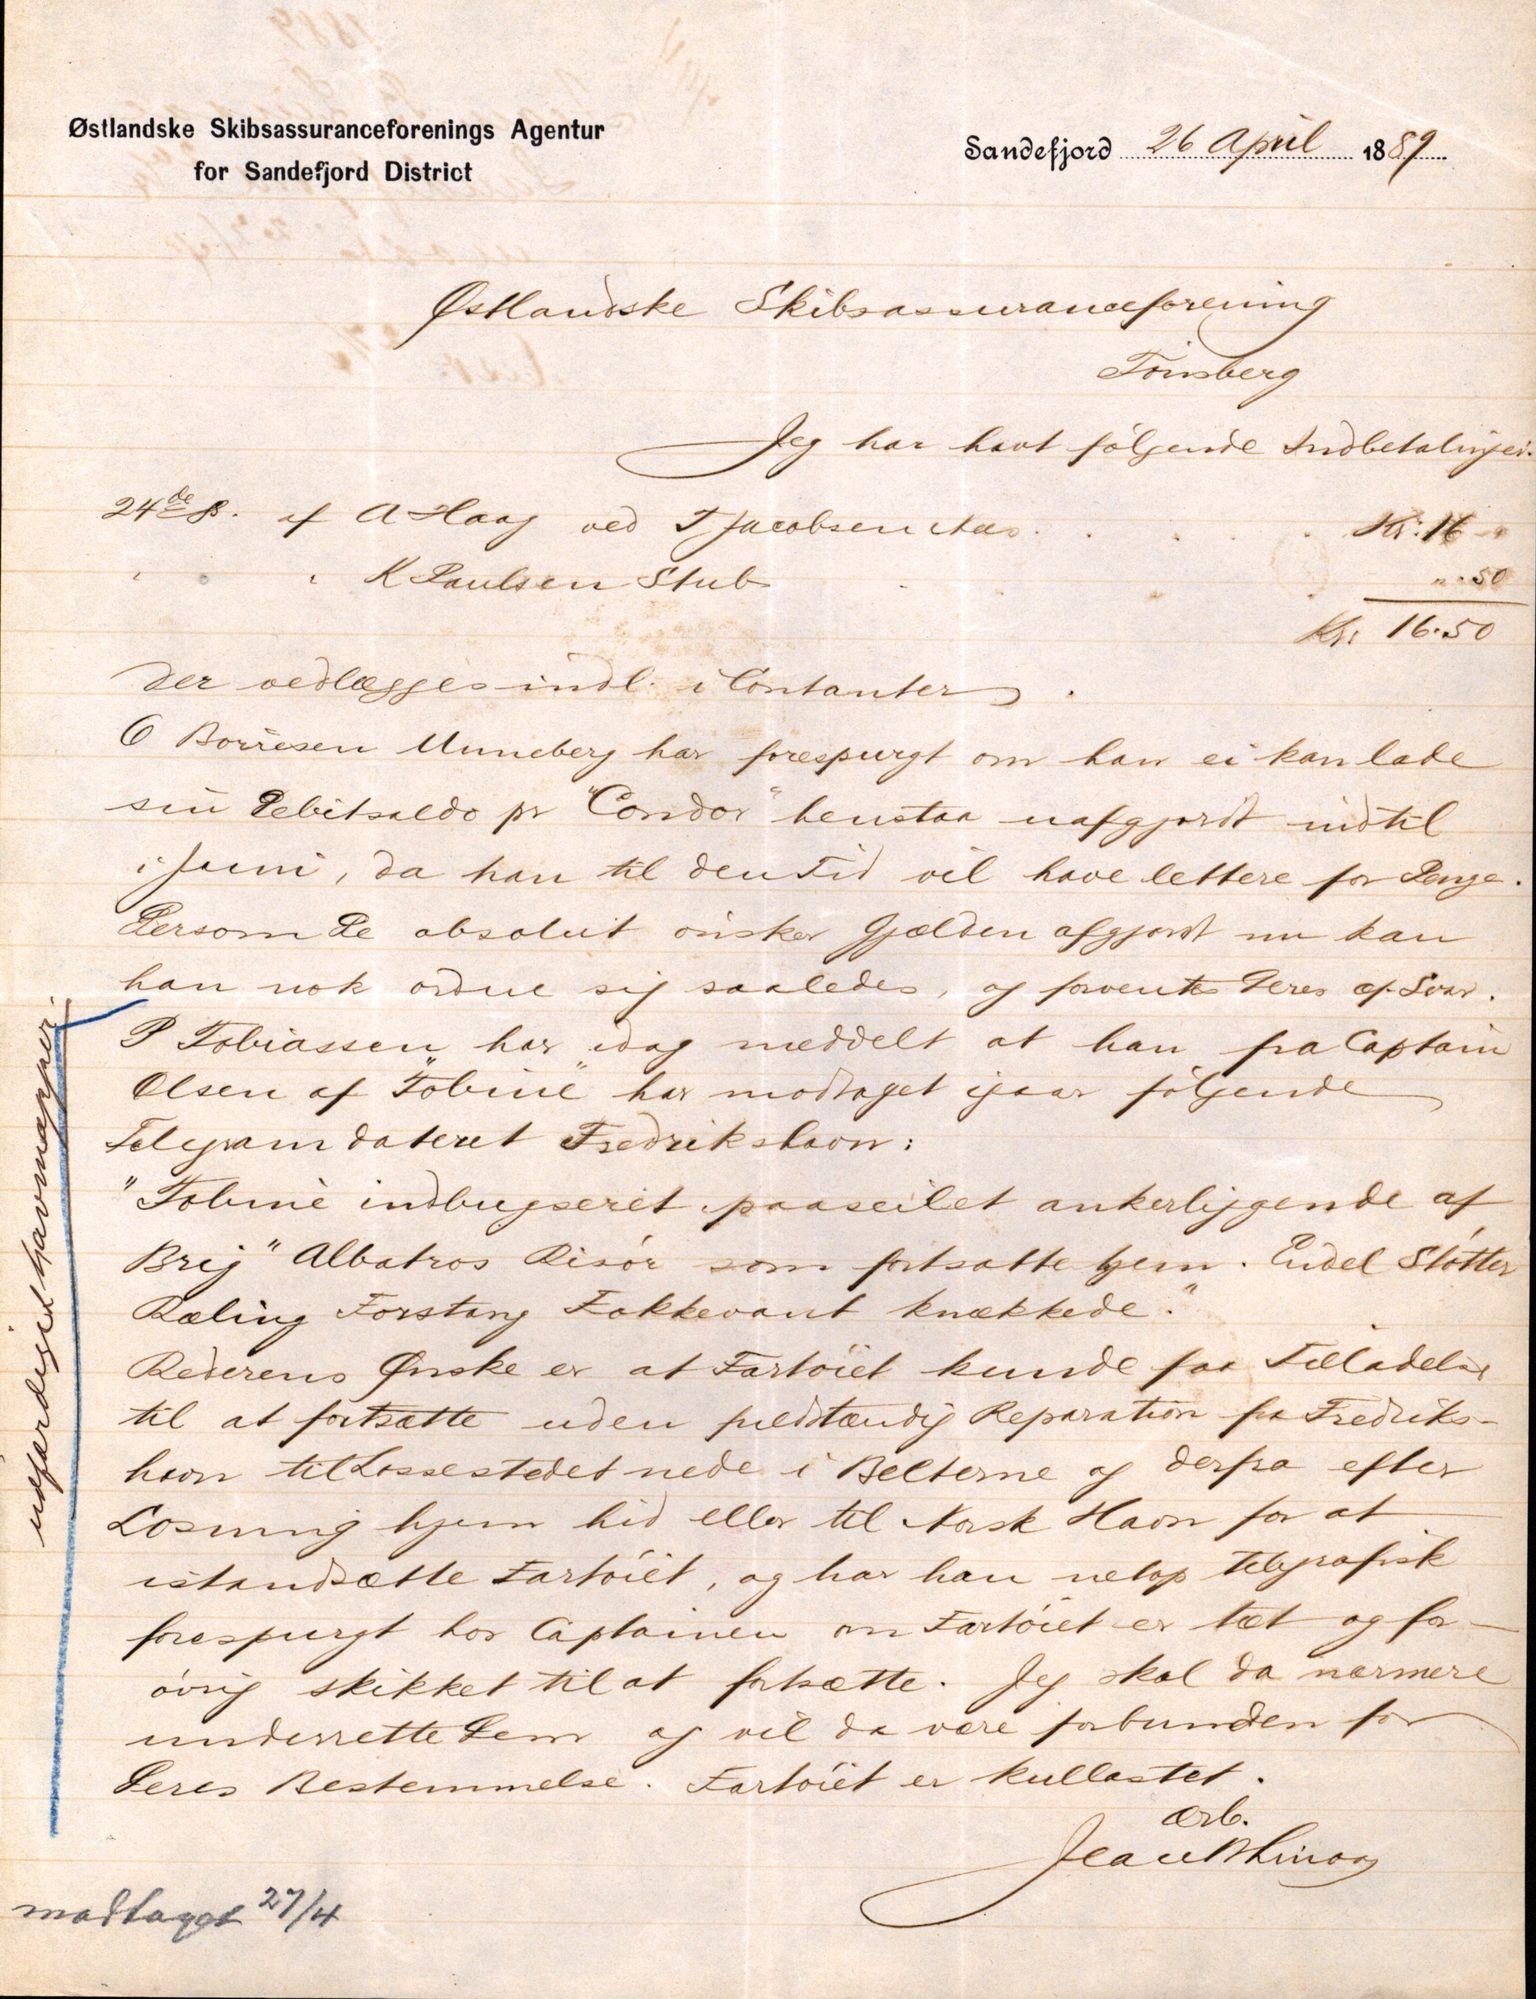 Østlandske Skibsassuranceforenings Agentur
for Sandefjord District
Sandefjord 26 April 1889
Østlandske Skibsassuranceforening
Tönsberg
Jeg har havt følgende Indbetalinger.
24de ds. af A Haag ved T Jacobsen Næs . . . . . Kr: 16 "
" " " K Paulsen Stub " . 50
Kr: 16.50
der vedlægges indl. i Contanter.
O Borresen Unneberg har forespurgt om han ei kan lade
sin Debitsaldo pr "Condor" henstaa uafgjordt indtil
i Juni, da han til den Tid vil have lettere for Penge.
Dersom De absolut önsker Gjælden afgjordt nu kan
han nok ordne sig saaledes, og forventes Deres af. Svar.
P Tobiassen har idag meddelt at han fra Captain
Olsen af "Tobine" har modtaget igaar følgende
Telegram dateret Fredrikshavn:
"Tobine indbugseret paaseilet ankerliggende af
Brig "Albatros Risör som fortsatte hjem. Endel Støtter
Ræling Forstang Fokkevant knækkede."
Rederens Ønske er at Fartöiet kunde faa Tilladelse
til at fortsætte uden fuldstændig Reparation fra Fredriks-
havn til Lossestedet nede i Belterne og derfra efter
Losning hjem hid eller til Norsk Havn for at
istandsætte Fartöiet, og har han netop telegrafisk
forespurgt hos Captainen om Fartöiet er tæt og for-
övrig skikket til at fortsætte. Jeg skal da nærmere
underrette Dem og vil da være forbunden for
Deres Bestemmelse. Fartöiet er kullastet.
Ærb.
Jean B Linaae
udfærdiget havmappir.
modtaget 27/4